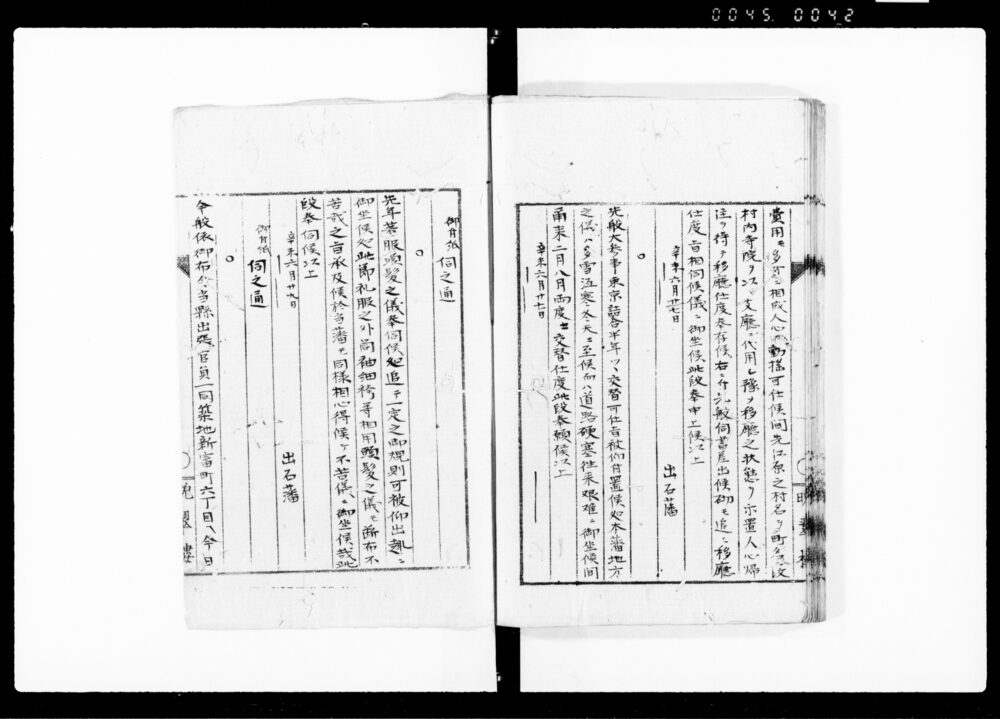 0045. 0042
費用モ多分ニ相成人心モ動揺可仕候間先江原之村名ヲ町名ニ改
村内寺院ヲ以テ支庁ニ代用シ豫メ移廳之状態ヲ示置人心帰
注ヲ待テ移廳仕度奉存候右ニ付先般伺書差出候砌モ追々移廳
仕度旨相伺候儀ニ御坐候此段奉申上候以上
辛未六月廿七日
出石藩
先般大参事東京詰合半年ツヽ交替可仕旨被仰付置候処本藩地方
之儀ハ多雪冱寒冬天ニ至候而ハ道路硬塞往来艱難ニ御坐候間
爾来二月八月両度ニ交替仕度此段奉願候以上
辛未六月廿七日
御付紙 伺之通
先年著服頭髪之儀奉伺候処追テ一定之御規則可被仰出趣ニ
御坐候処此節礼服之外筒袖細袴等相用頭髪之儀モ断布不
苦哉之旨承及候於当藩モ同様相心得候テ不苦儀ニ御坐候哉此
段奉伺候以上
辛未六月廿九日
出石藩
御付紙 伺之通
今般依御布令当縣出張官員一同築地新富町六丁目ヘ今日